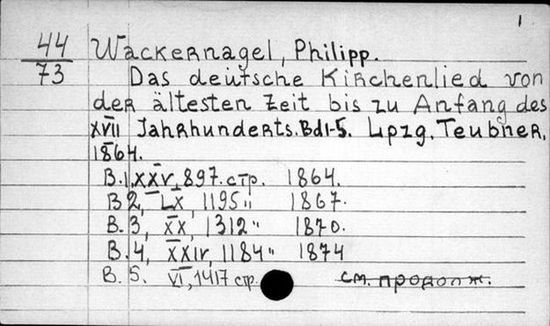 1.
44 Wackernagel, Philipp.
73 Das deutsche Kirchenlied von
der ältesten Zeit bis zu Anfang des
XVII Jahrhunderts. Bd 1-5. Lpzg, Teubner,
1864.
B. 1, XXV, 897. стр. 1864.
B 2, LX, 1195 " 1867.
B. 3, XX, 1312 " 1870.
B. 4, XXIV, 1184 " 1874
B. 5. VI, 1417 стр.
см. продолж.